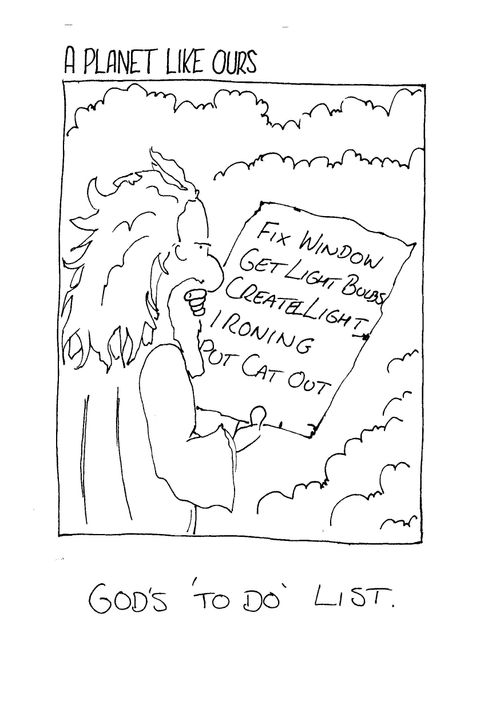 A PLANET LIKE OURS
FIX WINDOW
GET LIGHT BULBS
CREATE LIGHT
IRONING
PUT CAT OUT
GOD'S 'TO DO' LIST.